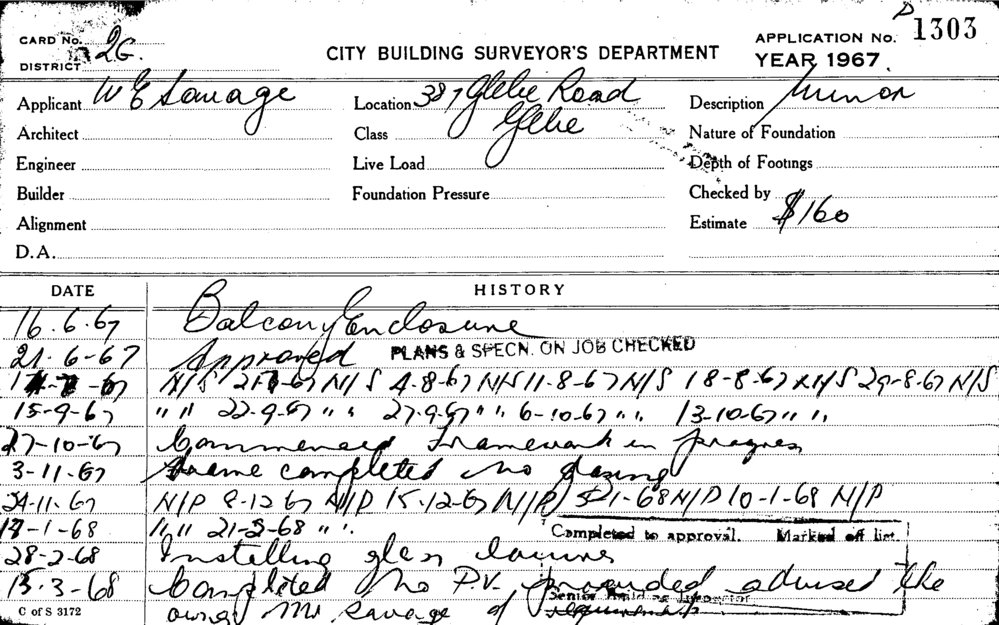 CARD No. 2G. CITY BUILDING SURVEYOR'S DEPARTMENT APPLICATION No. P 1303
DISTRICT YEAR 1967
Applicant W E Savage Location 387 Glebe Road Description Minor
Architect Class Glebe Nature of Foundation
Engineer Live Load Depth of Footings
Builder Foundation Pressure Checked by
Alignment Estimate $160
D.A.
DATE HISTORY
16.6.67 Balcony Enclosure
21-6-67 Approved PLANS & SPECN. ON JOB CHECKED
N/S N/S 4-8-67 N/S 11-8-67 N/S 18-8-67 N/S 29-8-67 N/S
15-9-67 " " 22-9-67 " " 27-9-67 " " 6-10-67 " " 13-10-67 " "
27-10-67 Commenced Framework in progress
3-11-67 Frame completed no glazing
24-11-67 N/P 8-12-67 N/P 15-12-67 N/P 5-1-68 N/P 10-1-68 N/P
-1-68 " " 21-2-68 " "
Completed to approval. Marked off list.
28-2-68 Installing glass louvres
15-3-68 Completed No P.V. provided advised the
Senior Building Inspector
C of S 3172 owner Mr Savage of requirements